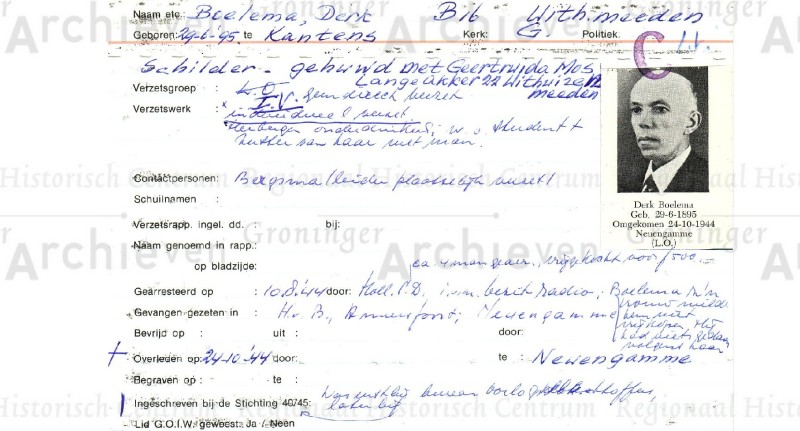 Groninger
Archieven
Regionaal Historisch Centrum
Naam etc. Boelema, Derk B16 Uith.meeden
Geboren: 29-6-95 te Kantens Kerk: G. Politiek.
C
Schilder - gehuwd met Geertruida Mos
Langeakker 22 Uithuizermeeden
Verzetsgroep : L.O.
Verzetswerk : individueel verzet
herbergen onderduikers, w.o. student +
Contactpersonen: Bergsma (leider plaatselijk verzet)
Schuilnamen :
Verzetsrapp. ingel. dd. : bij:
Naam genoemd in rapp.:
op bladzijde:
Derk Boelema
Geb. 29-6-1895
Omgekomen 24-10-1944
Neuengamme
(L.O.)
ca 4 maan gevan., vrijgekocht voor ƒ 500.-
Gearresteerd op : 10.8.'44 door: Holl. S.D., i.v.m. bezit radio, Boelema z'n
vrouw wilde
hem niet
vrijkopen. Hij
had niets gedaan
volgens haar
Gevangen gezeten in : H.v.B., Amersfoort, Neuengamme
Bevrijd op : uit : door:
+ Overleden op: 24-10-'44 door: te : Neuengamme
Begraven op : te :
Ingeschreven bij de Stichting 40'45:
later bij
Lid G.O.I.W. geweest: Ja / Neen